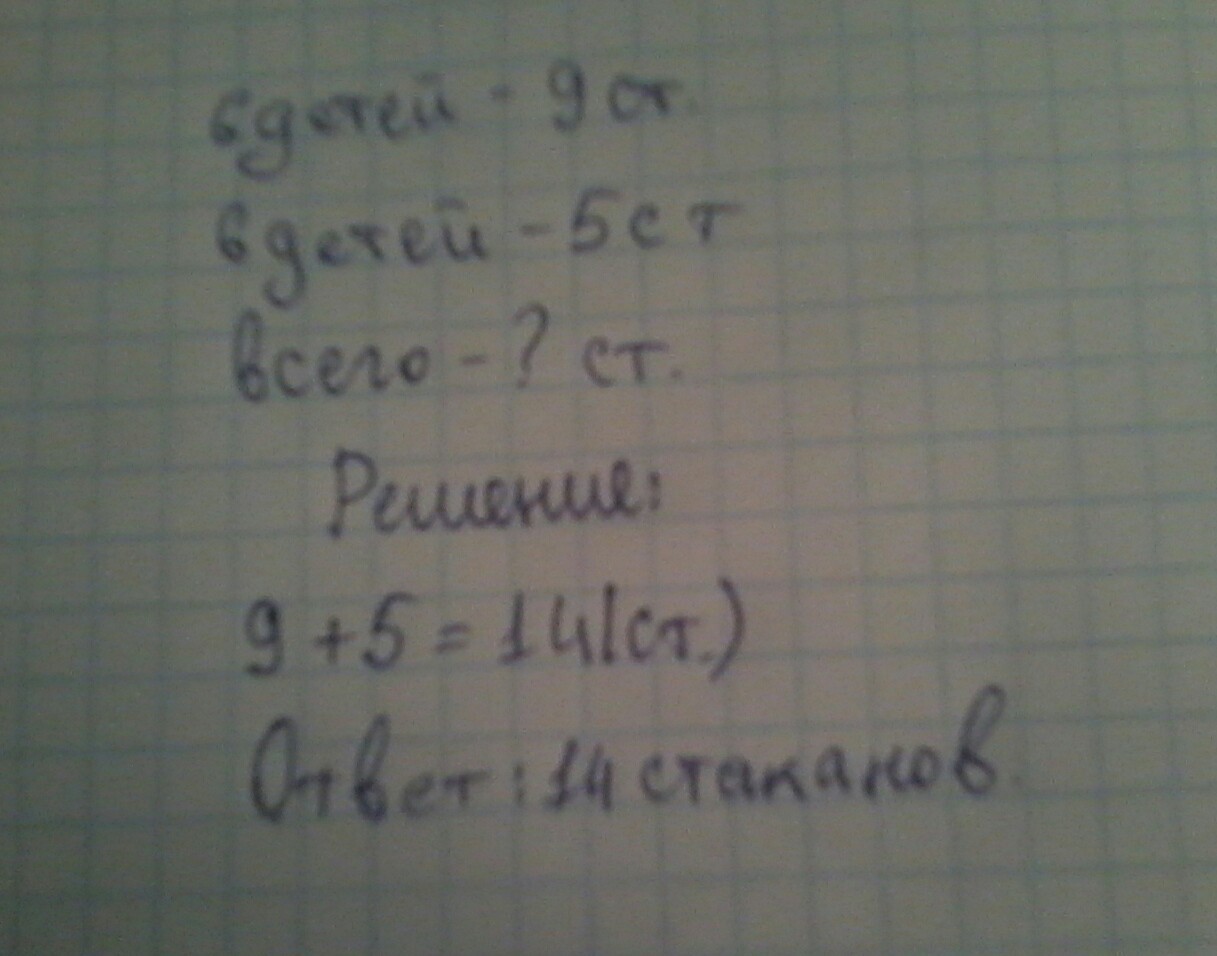 6 детей - 9 ст.
6 детей - 5 ст
всего - ? ст.
Решение:
9 + 5 = 14(ст.)
Ответ: 14 стаканов.